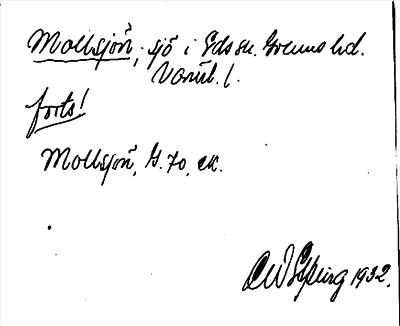 Mollsjön, sjö i Eds sn. Grums hd.
Värml. l.
forts!
Mollsjön, G. 70, ek.
1932.